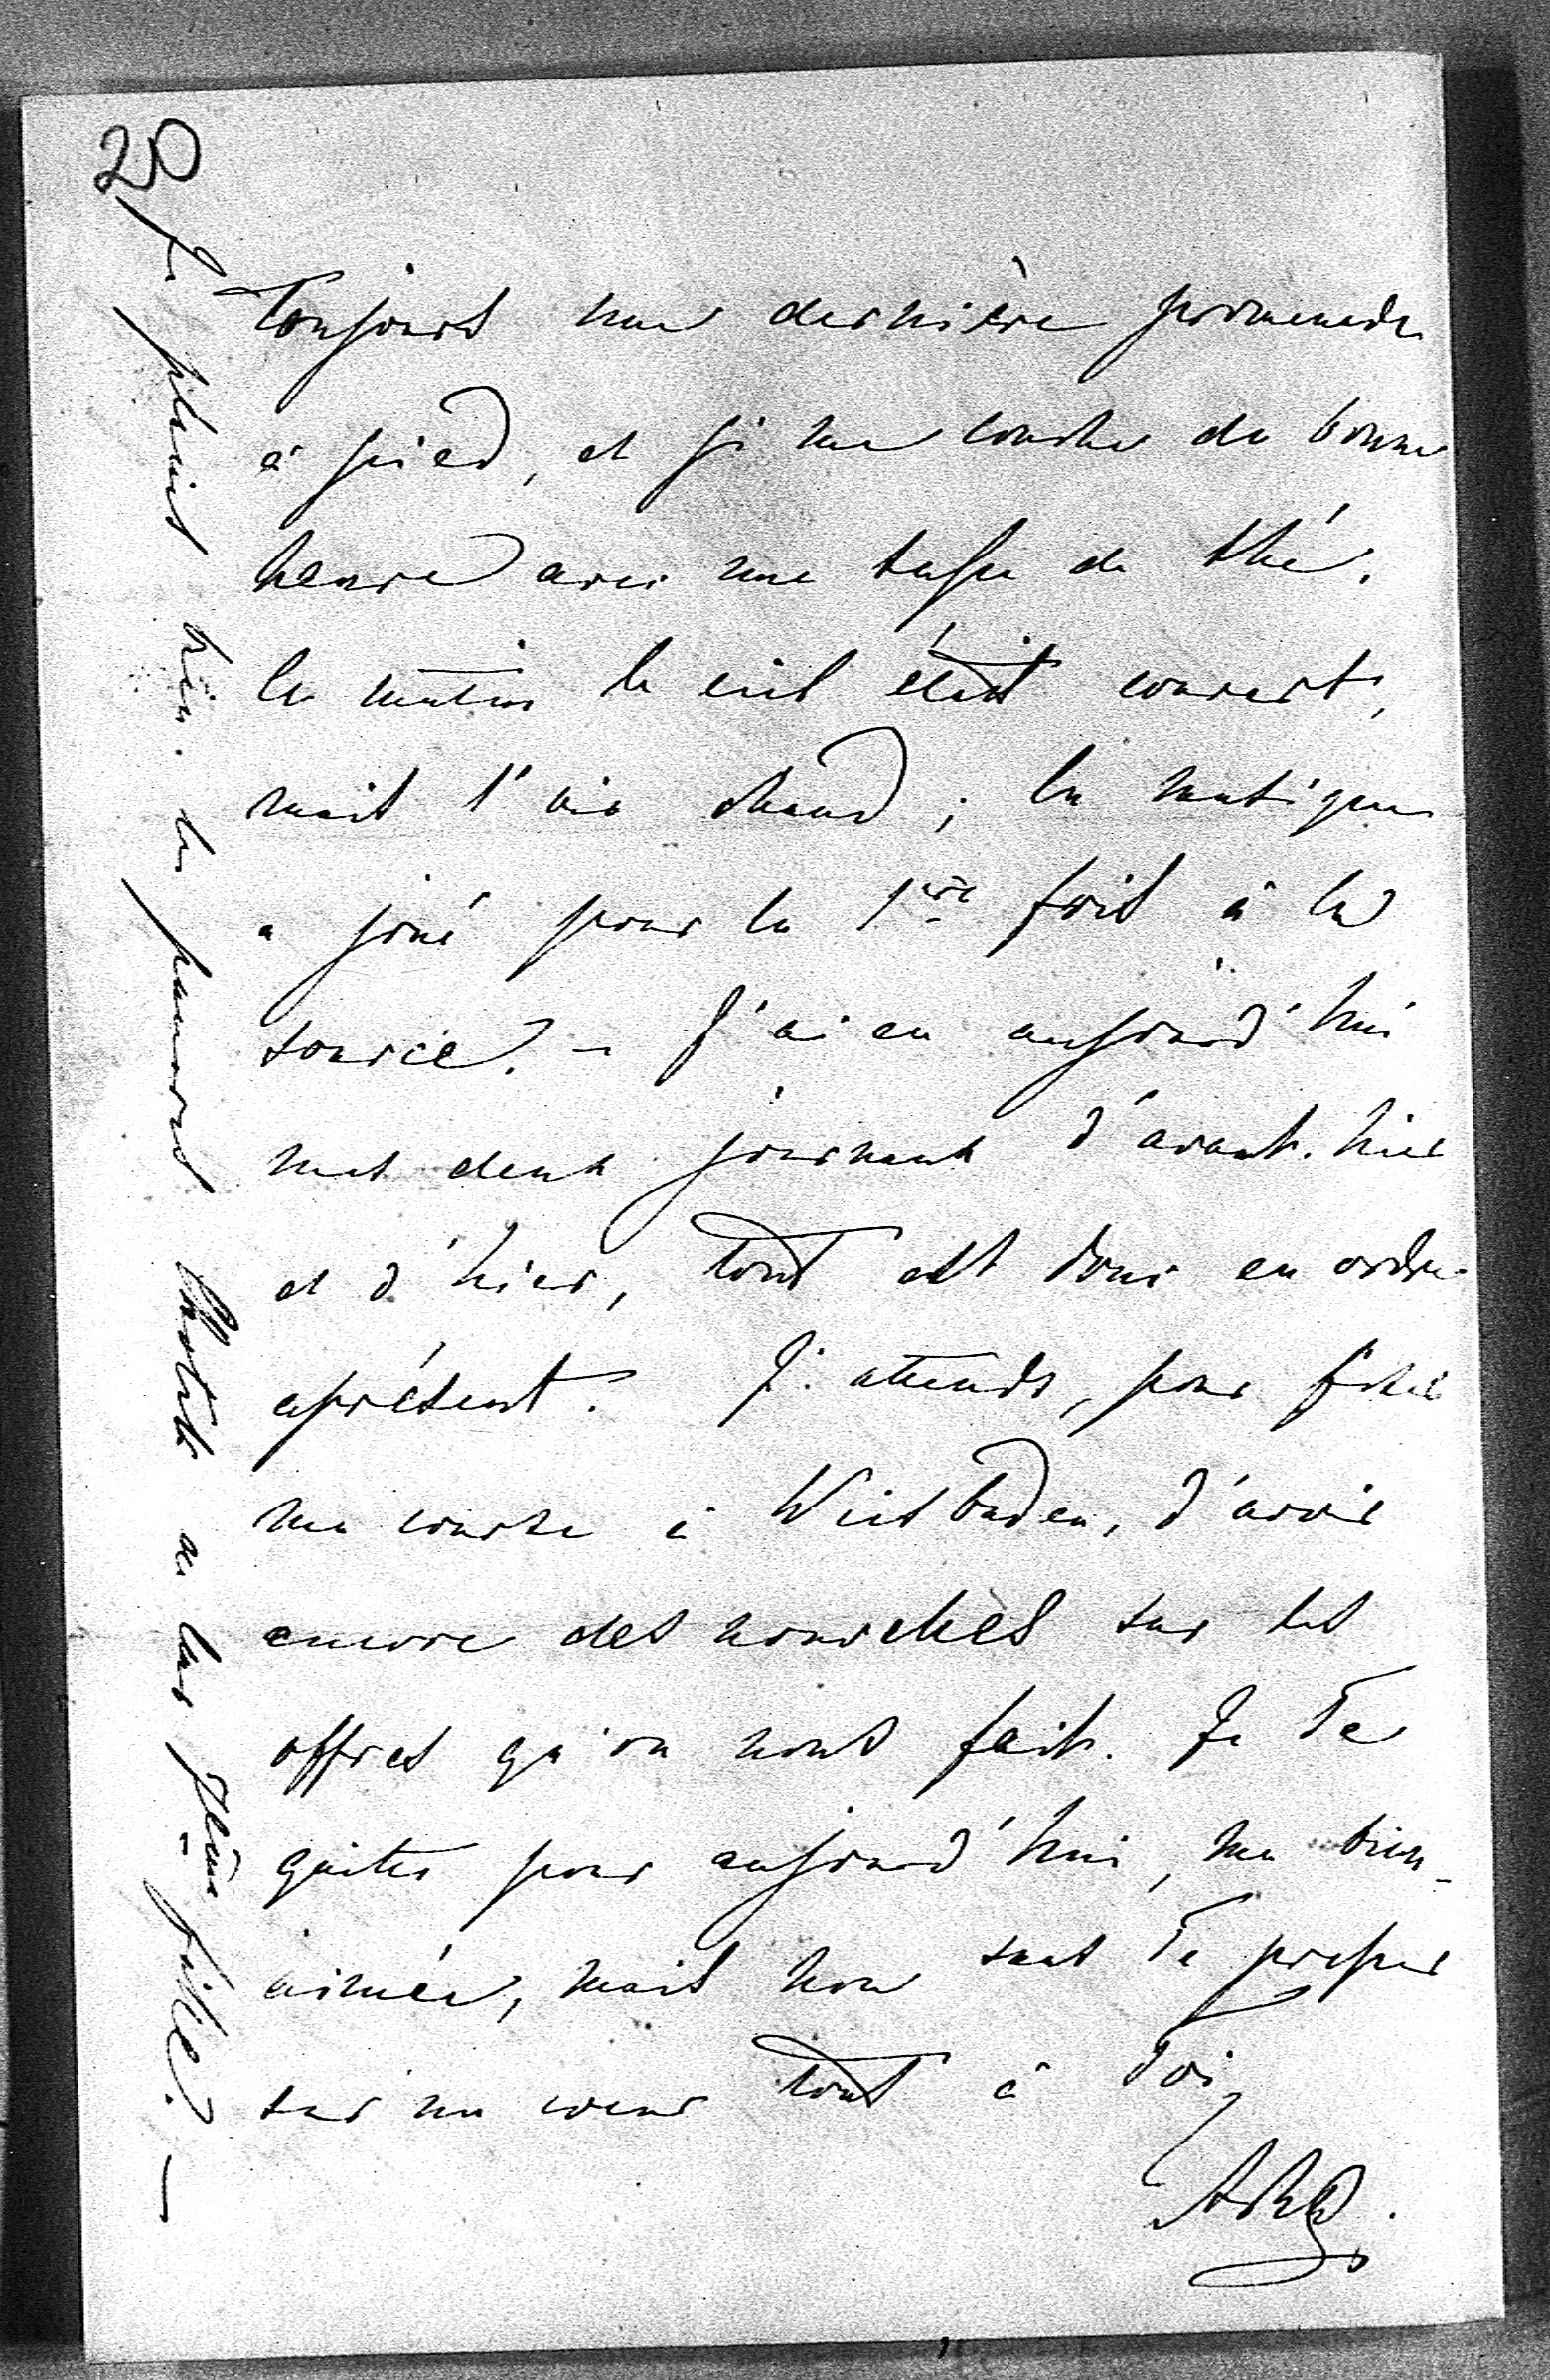 20
toujours une dernière promenade
à pied, et je me couche de bonne
heure avec une tasse de thé.
le matin le ciel était couvert,
mais l'air chaud; la musique
a joué pour la 1ère fois à la
source. – J'ai eu aujourd'hui
mes deux journaux d'avant-hier
et d'hier, tout est donc en ordre
aprésent. J'attends, pour fixer
ma course à Wiesbaden, d'avoir
encore des nouvelles sur les
offres qu'on nous fait. Je Te
quitte pour aujourd'hui, ma bien-
aimée, mais non sans Te presser
sur mon coeur tout à Toi
Je plains bien le pauvre et sa fille. –